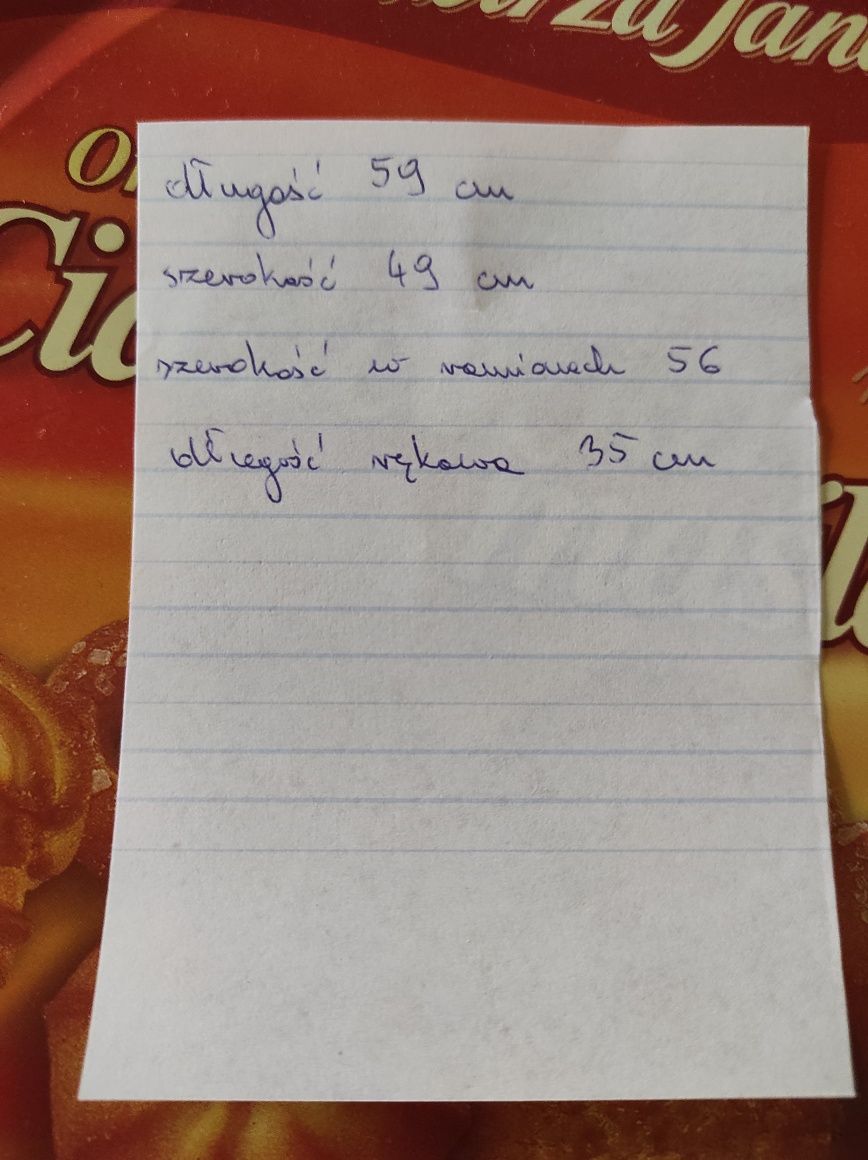 długość 59 cm
szerokość 49 cm
szerokość w ramionach 56
długość rękawa 35 cm